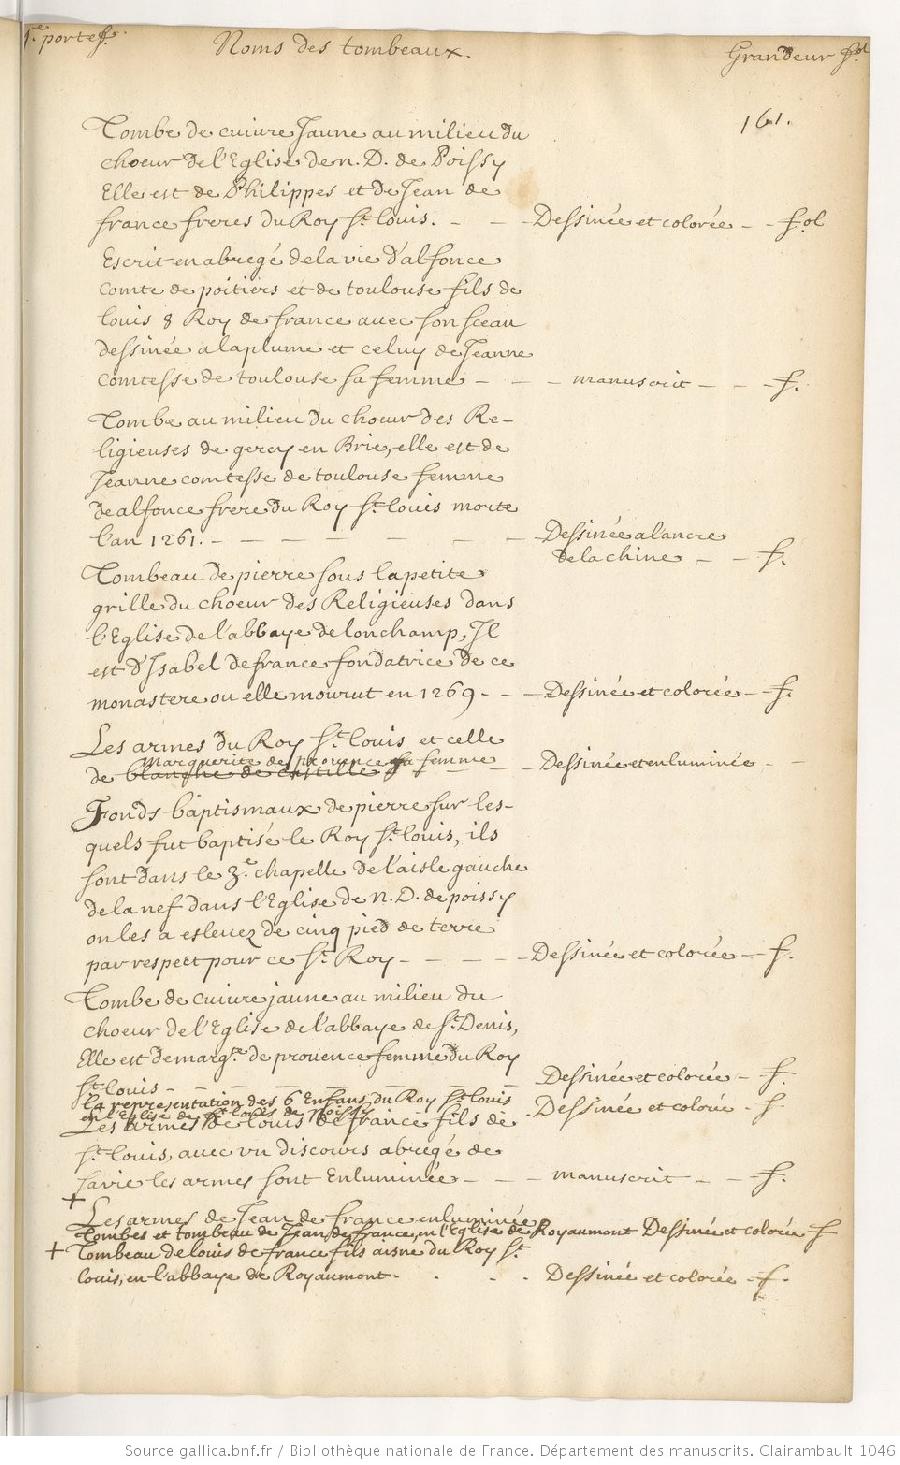 1.e portef.
Noms des tombeaux.
Grandeur f.ol
161.
Tombe de cuivre Jaune au milieu du
choeur de l'Eglise de n. D. de Poissy
Elle est de Philippes et de Jean de
france freres du Roy St. Louis. - - - Dessinée et colorée - - f.ol
Escrit en abregé de la vie d'alfonce
comte de poitiers et de toulouse fils de
louis 8 Roy de france avec son sceau
dessinée a la plume et celuy de Jeanne
comtesse de toulouse sa femme - - - manuscrit - - - f.
Tombe au milieu du choeur des Re-
ligieuses de gercy en Brie, elle est de
Jeanne comtesse de toulouse femme
de alfonce frere du Roy St. louis morte
l'an 1261. - - - - - - - Dessinée a l'ancre
de la chine - - f.
Tombeau de pierre sous la petite
grille du choeur des Religieuses dans
l'Eglise de l'abbaye de lonchamp, Il
est d'Isabel de france fondatrice de ce
monastere ou elle mourut en 1269 - - - Dessinée et colorée - f.
Les armes du Roy St. Louis et celle
Marguerite de provence sa femme
de blanche de castille - - - Dessinée et enluminée - -
Fonds baptismaux de pierre sur les-
quels fut baptisé le Roy St. louis, ils
sont dans le 3.e chapelle de l'aisle gauche
de la nef dans l'Eglise de N. D. de poissy
on les a eslevez de cinq pied de terre
par respect pour ce St. Roy - - - - - Dessinée et colorée - f.
Tombe de cuivre jaune au milieu du
choeur de l'Eglise de l'abbaye de St. Denis,
Elle est de marg.te de provence femme du Roy
St. louis - - - - - - - Dessinée et colorée - f.
La representation des 6 Enfans du Roy St. Louis
en l'Eglise de St. Louis de Poissy - Dessinée et colorée - f
Les armes de louis de france fils de
St. louis, avec vn discours abregé de
sa vie les armes sont Enluminée - - - manuscrit - - - f.
+
Les armes de Jean de france enluminée
Tombes et tombeau de Jean de france, en l'Eglise de Royaumont Dessinée et colorée f
+ Tombeau de louis de france fils aisne du Roy St.
louis, en l'abbaye de Royaumont - . . - Dessinée et colorée - f.
Source gallica.bnf.fr / Bibliothèque nationale de France. Département des manuscrits. Clairambault 1046